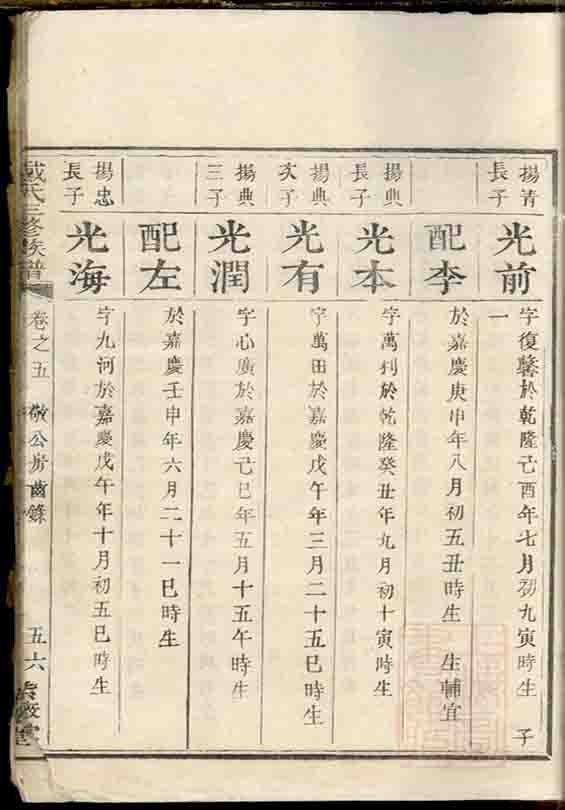 揚青長子
光前
字復馨於乾隆己酉年七月初九寅時生 子
一
配李
於嘉慶庚申年八月初五丑時生 生輔宜
揚典長子
光本
字萬利於乾隆癸丑年九月初十寅時生
揚典次子
光有
字萬田於嘉慶戊午年三月二十五巳時生
揚典三子
光潤
字心廣於嘉慶己巳年五月十五午時生
配左
於嘉慶壬申年六月二十一巳時生
揚忠長子
光海
字九河於嘉慶戊午年十月初五巳時生
戴氏三修族譜
卷之五 敬公房齒錄
五六